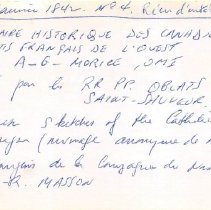 1842. N° 4. Rien d'
HISTORIQUE DES CANAD
IS FRANÇAIS DE L'OUEST
A-G-MORICE, OMI
par les RR PP. OBLATS
SAINT-SAUVEUR,
sketches of the Catholic
(ouvrage anonyme de
de la Compagnie du
R. MASSON